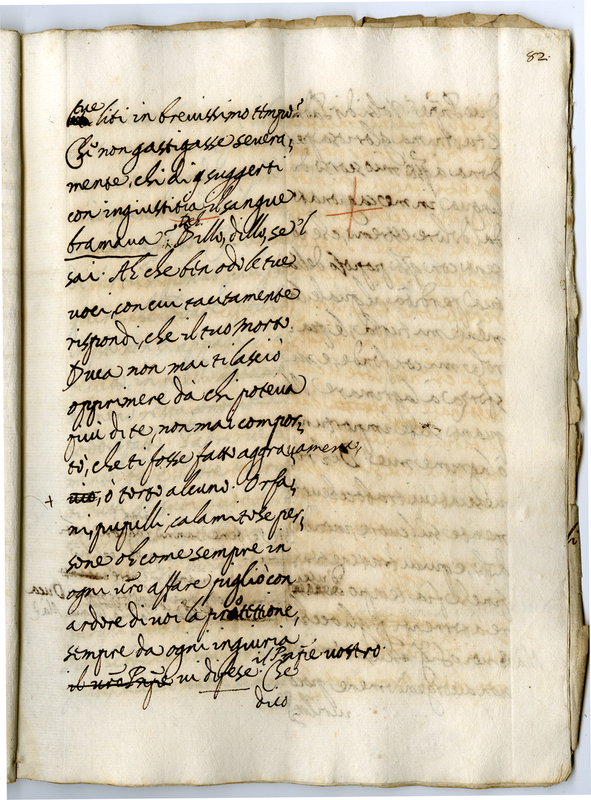 82.
tue liti in brevissimo tempo?
Chi non gastigasse severa,
mente, chi di suggerti
con ingiustitia il sangue
bramava? Dillo, dillo, se'l
sai. Ah che ben odo le tue
voci, con cui tacitamente
rispondi, che il tuo morto
Duca non mai ti lasciò
opprimere dà chi poteva
più di te, non mai compor,
tò, che ti fosse fatto aggravament
ò torto alcuno. Orfa,
ni, pupilli, calamitose per,
sone oh come sempre in
ogni vrō affare pigliò con
ardore di voi la protettione,
sempre da ogni ingiuria
il vrō Prnpē vi difese il Prnpē vostro. Che
dico